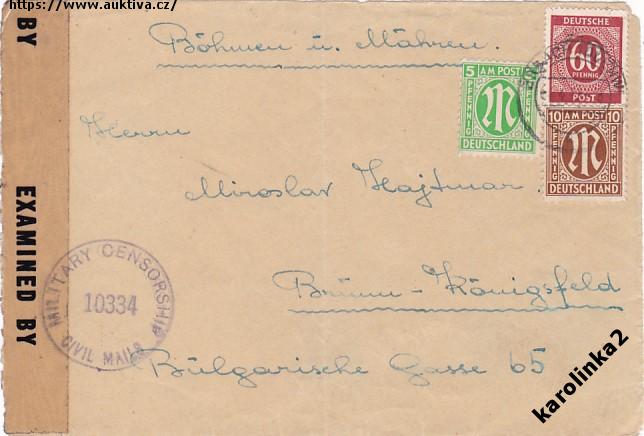 https://www.auktiva.cz/
BY
EXAMINED BY
Böhmen u. Mähren.
DEUTSCHE
60
PFENNIG
POST
5 AM POST
PFENNIG M PFENNIG
DEUTSCHLAND
10 AM POST 10
PFENNIG M PFENNIG
DEUTSCHLAND
Herrn
Miroslav Hajtmar.
Brünn-Königsfeld
Bulgarische Gasse 65
MILITARY CENSORSHIP
10334
CIVIL MAILS
karolinka2